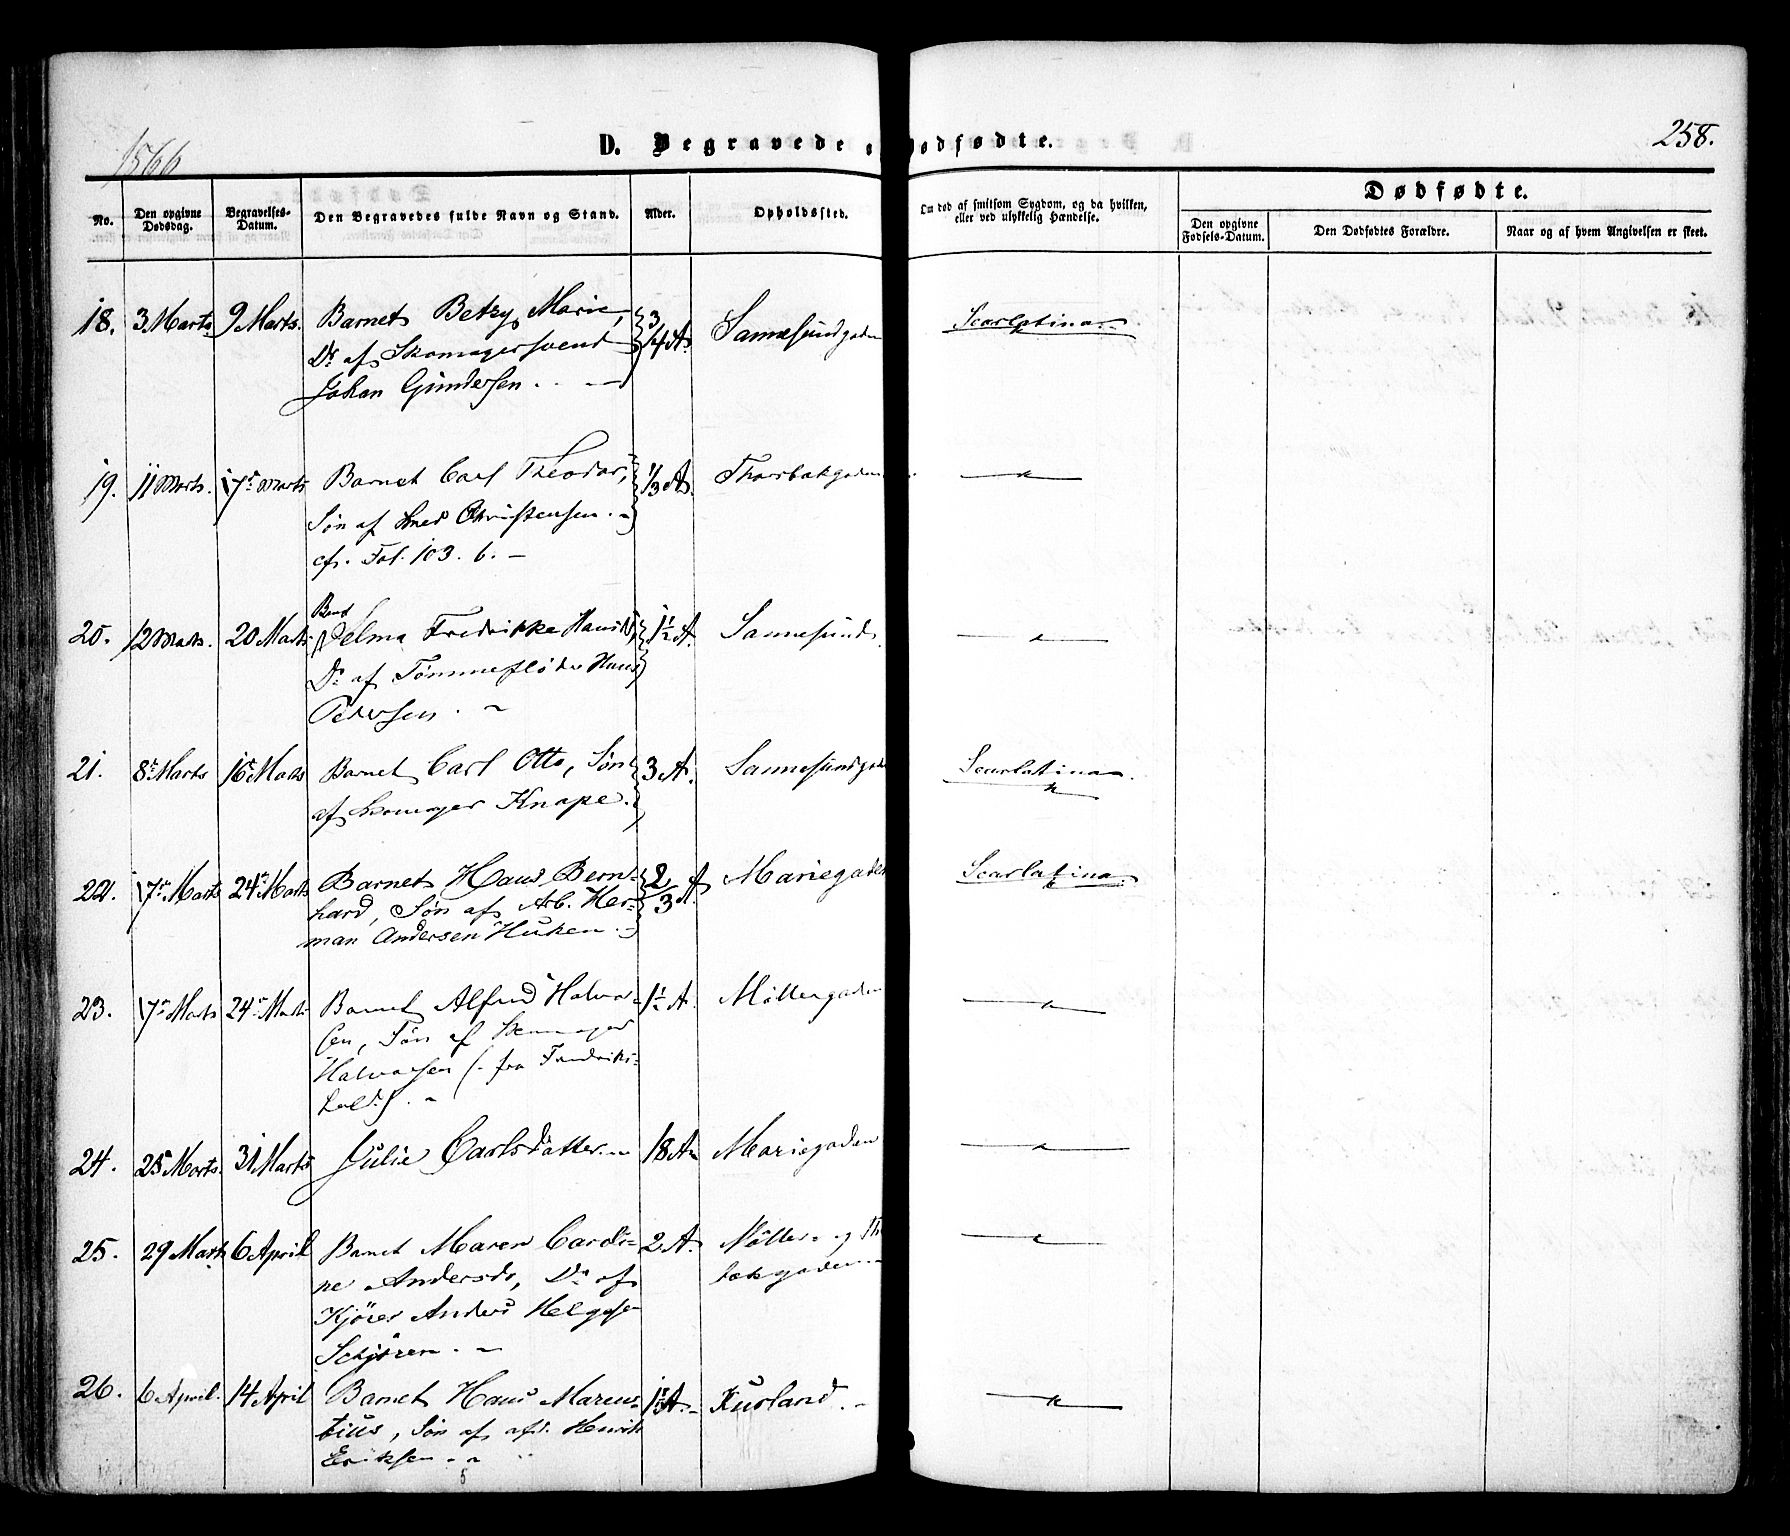 1866
D. Begravede o Dødfødte.
258.
No.
Den opgivne Dødsdag.
Begravelses-Datum.
Den Begravedes fulde Navn og Stand.
Alder.
Opholdssted.
Om død af smitsom Sygdom, og da hvilken, eller ved ulykkelig Hændelse.
Dødfødte.
Den opgivne Fødsels-Datum.
Den Dødfødtes Forældre.
Naar og af hvem Angivelsen er skeet.
18. 3 Marts 9 Marts. Barnet Betzy Marie, 3/4 A. Sannesundgaden Scarlatina
Dr af Skomagersvend
Johan Gundersen
19. 11 Marts. 17 Marts Barnet Carl Theodor, 1/3 A. Thorsbakgaden
Søn af Smed Christensen.
cfr. Fol. 103. b.
20. 12 Marts. 20 Marts Barnet Velma Fredrikke Hansd, 1½ A. Sannesund
Dr af Tømmerfløder Hans
Pedersen
21. 8 Marts 16 Marts Barnet Carl Otto, Søn 3 A. Sannesundgade Scarlatina
af Skomager Knape.
22. 17 Marts 24 Marts Barnet Hans Bern- 2/3 A. Mariegaden Scarlatina
hard, Søn af Arb. Her-
man Andersen Huken.
23. 17 Marts 24 Marts Barnet Alfred Halvor- 1½ A. Møllergaden
sen, Søn af Skomager
Halvorsen (fra Fredriks-
hald).
24. 25 Marts. 31 Marts Julie Carlsdatter 18 A. Mariegaden
25. 29 Marts 6 April Barnet Maren Cardi- 2 A. Møller- og Th
ne Andersdr, Dr af bakgaden
Kjører Anders Helgesen
Schjøren.
26. 6 April. 14 April Barnet Hans Maren- Kurland.
tius, Søn af afd. Henrik
Eriksen